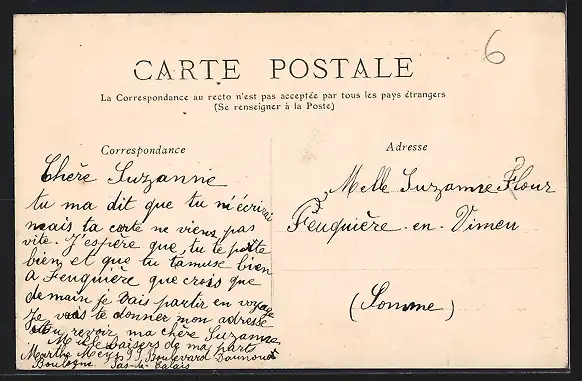 6
CARTE POSTALE
La Correspondance au recto n'est pas acceptée par tous les pays étrangers
(Se renseigner à la Poste)
Correspondance
Chère Suzanne
tu ma dit que tu m'écrirai
mais ta carte ne viens pas
vite. J'espère que tu te porte
bien et que tu tamuse bien
a Feuquière que crois que
demain je vais partir en voyage
Je vais te donner mon adresse
revoir ma chère Suzanne
Mille baisers de ma part
Marthe Boulevard Daunou
Boulogne Pas-de-Calais
Adresse
Melle Suzanne Flour
Feuquière-en-Vimeu
(Somme)